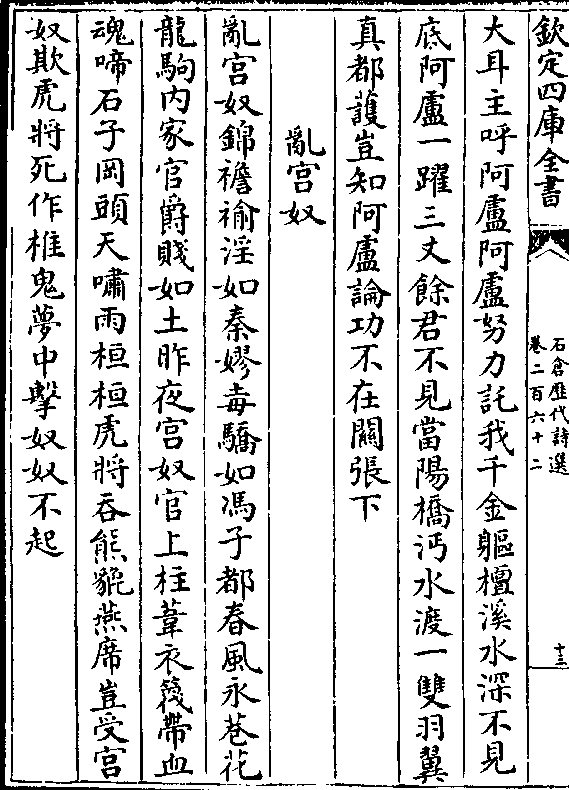 欽定四庫全書
石倉歷代詩選
卷二百六十二
十三
大耳主呼阿盧阿盧努力託我千金軀檀溪水深不見
底阿盧一躍三丈餘君不見當陽橋沔水渡一雙羽翼
真都護豈知阿盧論功不在關張下
亂宫奴
亂宫奴錦襜褕淫如秦嫪毐驕如馮子都春風永巷花
龍駒内家官爵賤如土昨夜宫奴官上柱葦衣筏帶血
魂啼石子岡頭天嘯雨桓桓虎將吞熊貔燕席豈受宫
奴欺虎將死作椎鬼夢中擊奴奴不起